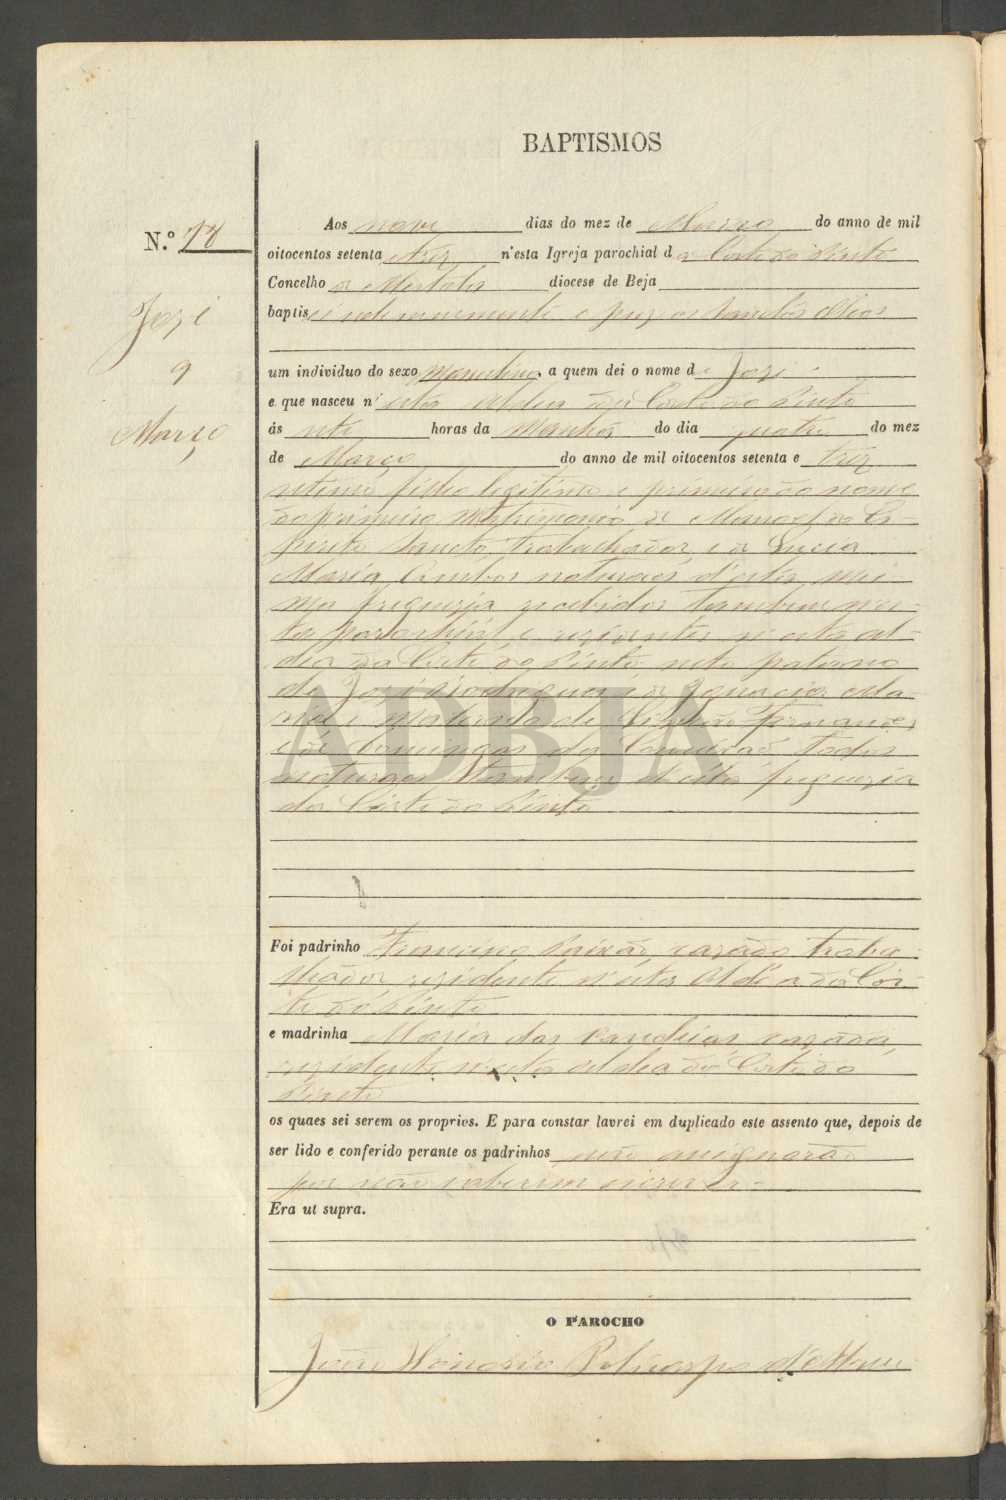 BAPTISMOS
N.º 18
José
9
Março
Aos nove dias do mez de Março do anno de mil
oitocentos setenta e trez n'esta Igreja parochial da Corte do Pinto
Concelho de Mertola diocese de Beja
baptisei solemnemente e puz os Santos Oleos
um individuo do sexo Masculino, a quem dei o nome de José
e que nasceu n'esta Aldea da Corte do Pinto
ás sete horas da Manhã do dia quatro do mez
de Março do anno de mil oitocentos setenta e trez
setimo filho legitimo e primeiro do nome
do primeiro Matrimonio de Manoel do Es-
pirito Sancto, trabalhador, e de Lucia
Maria, Ambos naturaes d'esta mes-
ma freguezia recebidos tambem nes-
ta parochia e rezidentes n'esta Al-
dea da Corte do Pinto neto paterno
de José Rodrigues, e de Ignacia
e Materno de Fernandes
e de Domingas da Conceicão todos
naturaes tambem d'esta freguezia
da Corte do Pinto
Foi padrinho Francisco Paixão, cazado traba-
lhador rezidente n'esta Aldêa da Cor-
te do Pinto
e madrinha Maria das Candeias cazada,
rezidente n'esta Aldea da Corte do
Pinto
os quaes sei serem os proprios. E para constar lavrei em duplicado este assento que, depois de
ser lido e conferido perante os padrinhos não assignarão
por não saberem escrever-
Era ut supra.
O PAROCHO
João Honorio Policarpo d'
ADBJA